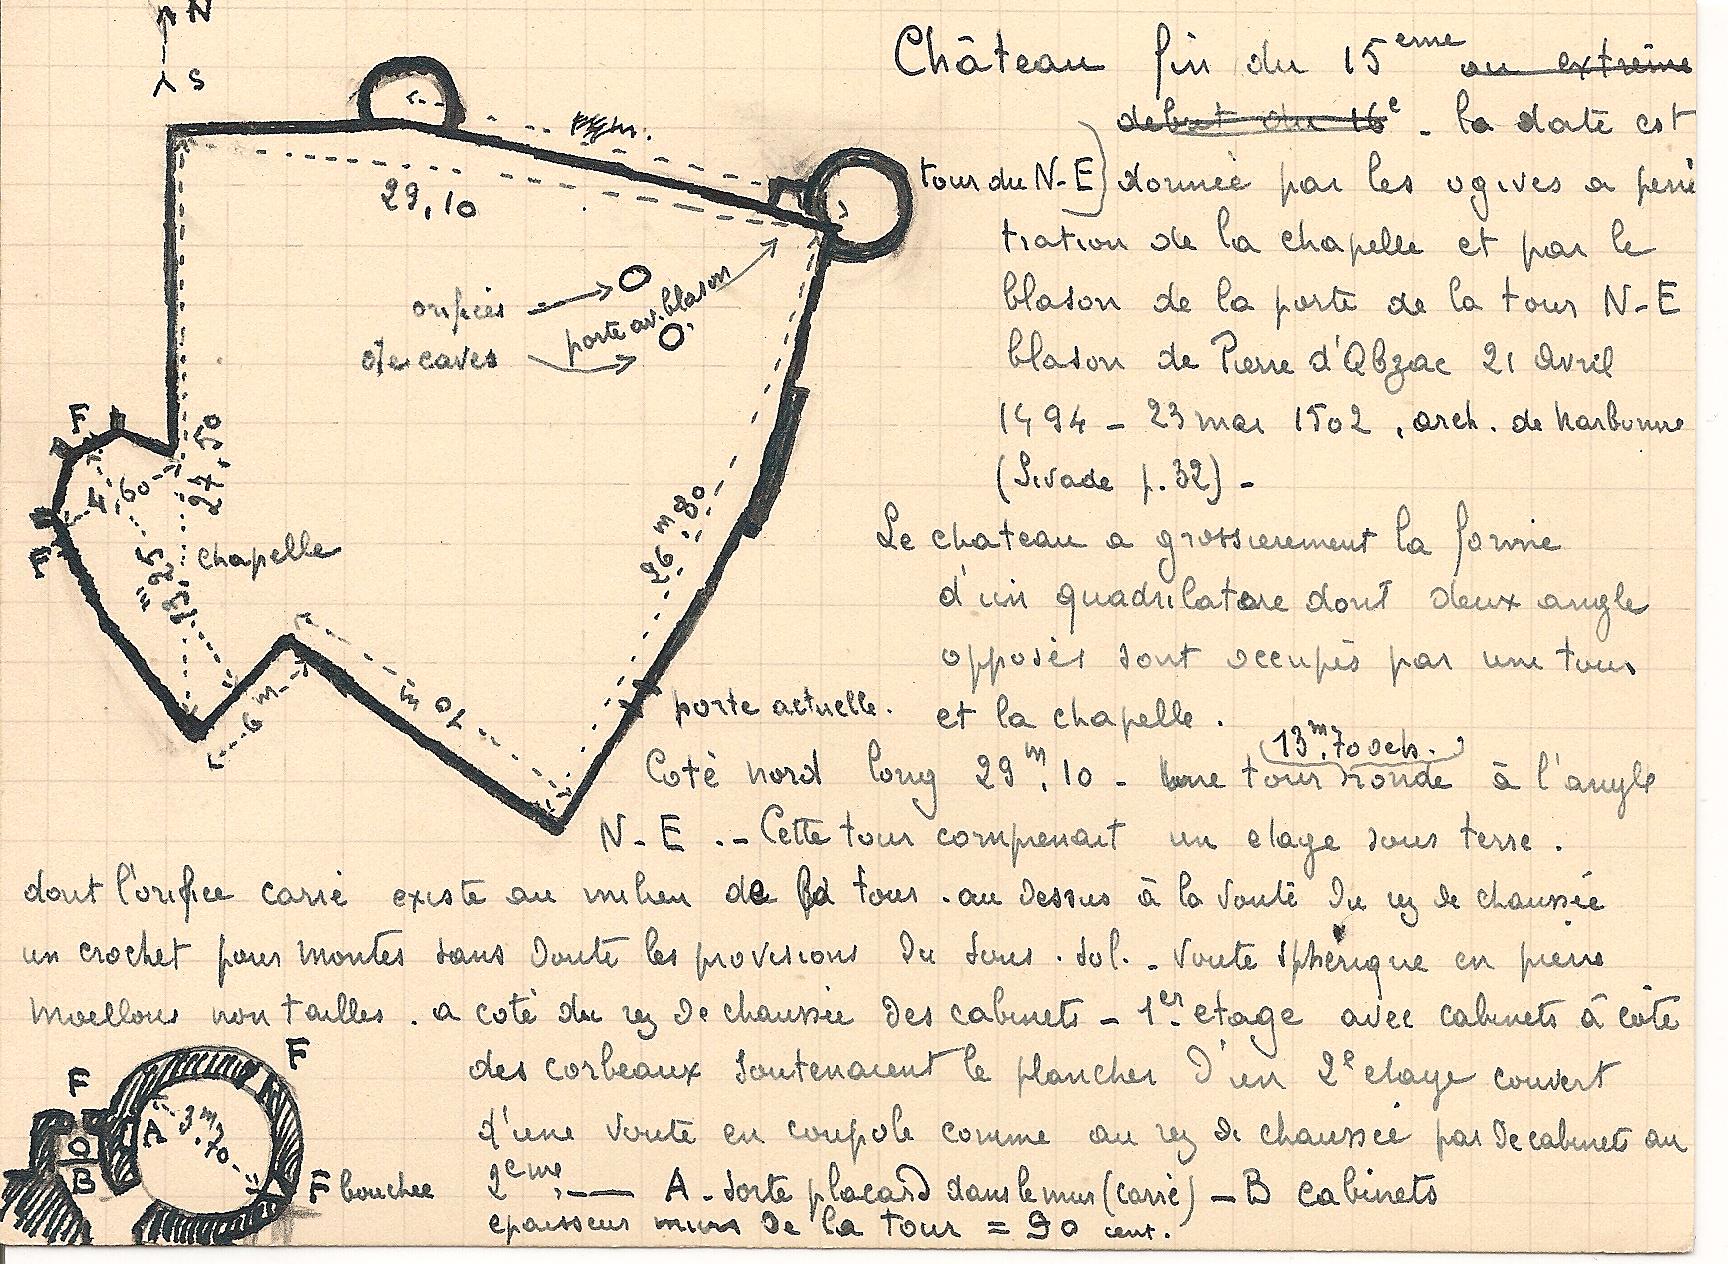 N
S
Château fin du 15eme ou extrême
debut du 16e - la date est
tour du N-E
donnée par les ogives a péné
tration de la chapelle et par le
blason de la porte de la tour N-E
blason de Pierre d'Abzac 21 Avril
1494 - 23 mai 1502, arch. de Narbonne
(Sivade p. 32) -
29,10
orifices
de caves
porte av. blason
F
4,60
27,50
F
8,25 m
chapelle
26 m 80
6 m
10 m
porte actuelle.
Le chateau a grossierement la forme
d'un quadrilatere dont deux angle
opposés sont occupés par une tour
et la chapelle.
13m,70 deh.
Coté nord long 29m,10 - Une tour ronde à l'angle
N-E .- Cette tour comprenait un etage sous terre.
dont l'orifice carré existe au milieu de la tour. au dessus à la voute du rez de chaussée
un crochet pour monter sans doute les provisions du sous-sol. - Voute sphérique en pierre
moellons non tailles. a coté du rez de chaussée des cabinets - 1er etage avec cabinets à côte
des corbeaux soutenaient le plancher d'un 2e etage couvert
d'une voute en coupole comme au rez de chaussée pas de cabinets au
2eme, -- A - sorte placard dans le mur (carré) - B cabinets
epaisseur murs de la tour = 90 cent.
F
F
A
3m,70
B
F bouchee